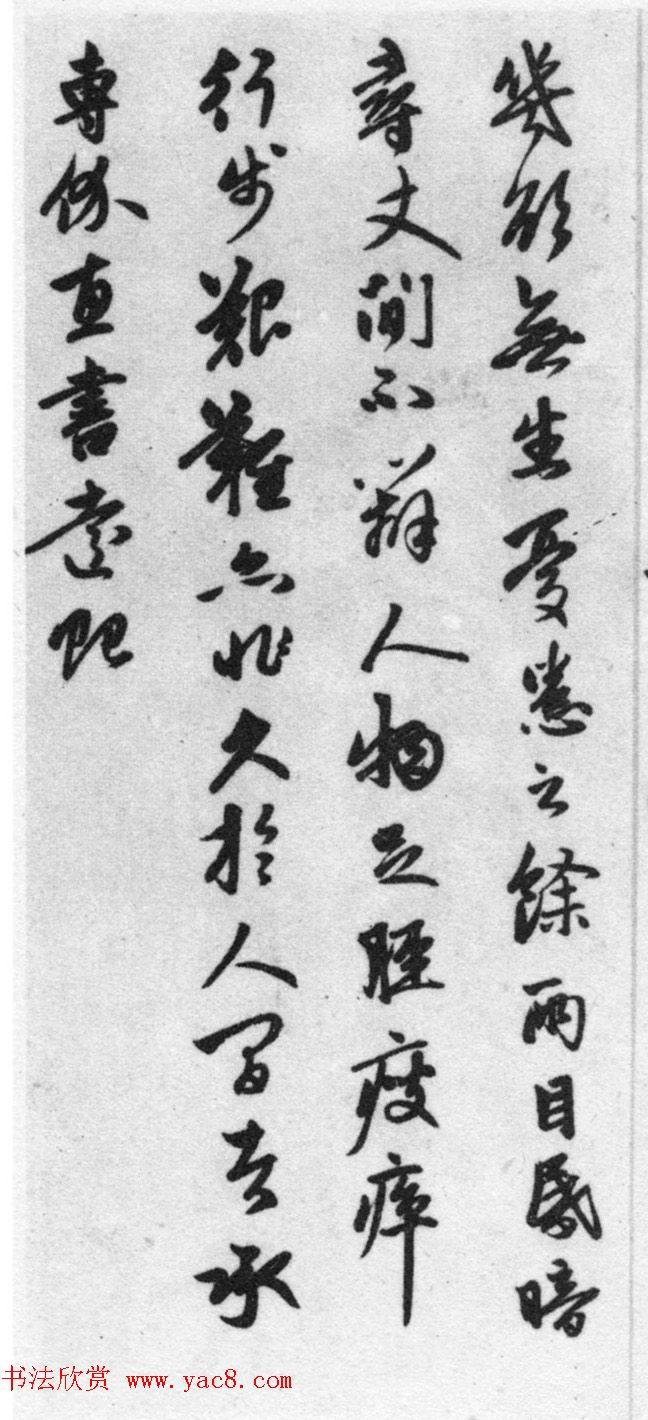 幾欲無生憂患之餘兩目昏暗
尋丈間不辨人物足脛痠瘁
行步艱難亦非久於人間者承
專价惠書遠貺
书法欣赏 www.yac8.com